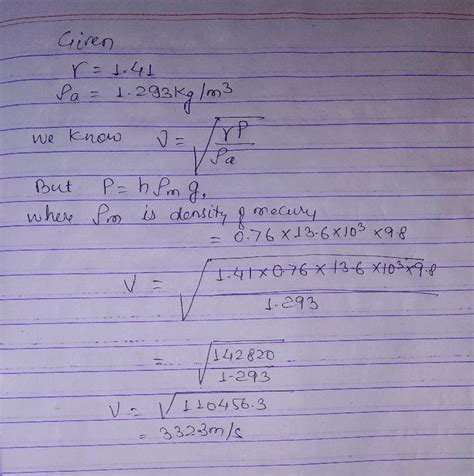 Given
γ = 1.41
ρa = 1.293kg/m3
we know v = √γP/ρa
But P = hρm g,
where ρm is density of mecury
= 0.76 × 13.6 × 10³ × 9.8
V = √1.41×0.76 × 13.6 ×10³×9.8/1.293
= √142820/1.293
V = √110456.3
= 332.3m/s